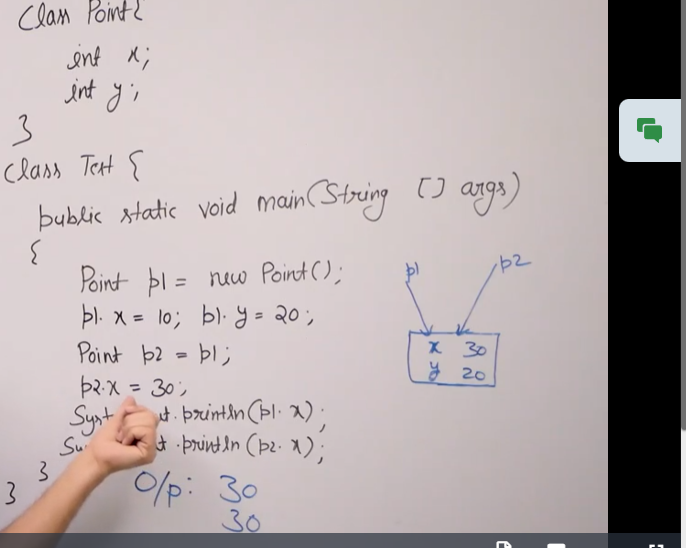 class Point{
int x;
int y;
}
class Test {
public static void main(String [] args)
{
Point p1 = new Point();
p1.x = 10; p1.y = 20;
Point p2 = p1;
p2.x = 30;
println(p1.x);
println(p2.x);
}
}
O/p: 30
30
p1 p2
x 30
y 20